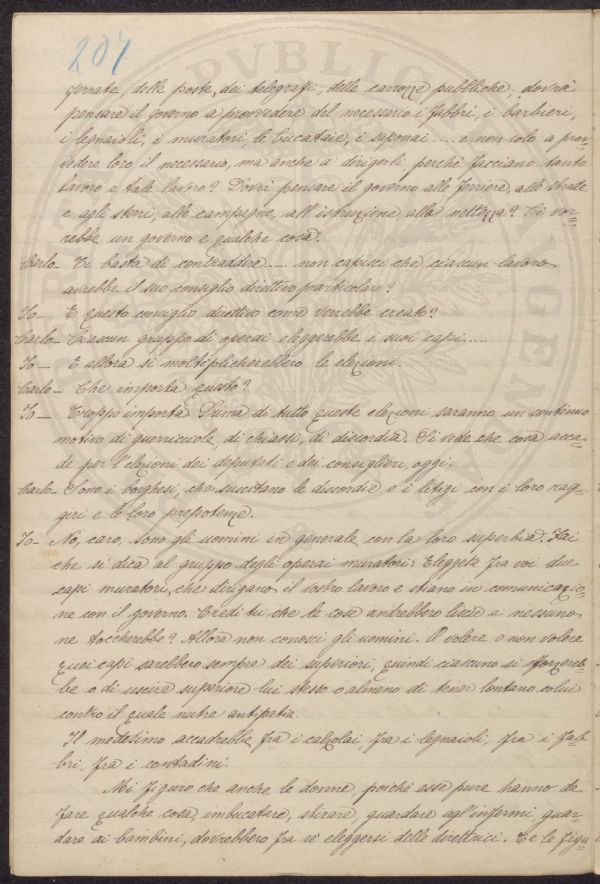 207
ferrate, delle poste, dei telegrafi, delle carrozze pubbliche; dovrà
pensare il governo a provvedere del necessario i fabbri, i barbieri,
i legnaioli, i muratori, le bucataie, i saponai..... e non solo a prov-
vedere loro il necessario, ma anche a dirigerli perchè facciano tanto
lavoro e tale lavoro? Dovrà pensare il governo alle ferriere, alle strade
e agli sterri, alle campagne, all'istruzione alla nettezza? Ci vor-
rebbe un governo e qualche cosa.
Carlo - Ti basta di contraddire..... non capisci che ciascun lavoro
avrebbe il suo consiglio direttivo particolare?
Io - E questo consiglio direttivo come verrebbe creato?
Carlo - Ciascun gruppo di operai eleggerebbe i suoi capi.....
Io - E allora si moltiplicherebbero le elezioni.
Carlo - Che importa questo?
Io - Troppo importa. Prima di tutto queste elezioni saranno un continuo
motivo di guerricciuole, di chiassi, di discordia. Si vede che cosa acca-
de per l'elezioni dei deputati e dei consiglieri, oggi.
Carlo - Sono i borghesi, che suscitano le discordie e i litigi con i loro rag-
giri e le loro prepotenze.
Io - No, caro, sono gli uomini in generale con la loro superbia. Fai
che si dica al gruppo degli operai muratori: Eleggete fra voi due
capi muratori, che dirigano il vostro lavoro e stiano in comunicazio-
ne con il governo. Credi tu che le cose andrebbero liscie e nessuno
ne toccherebbe? Allora non conosci gli uomini. O volere o non volere
quei capi sarebbero sempre dei superiori, quindi ciascuno si sforzereb-
be o di uscire superiore lui stesso o almeno di tener lontano colui
contro il quale nutre antipatia.
Il medesimo accadrebbe fra i calzolai, fra i legnaioli, fra i fab-
bri, fra i contadini.
Mi figuro che anche le donne, poichè esse pure hanno da
fare qualche cosa, imbucatare, stirare, guardare agl'infermi, guar-
dare ai bambini, dovrebbero fra sè eleggersi delle direttrici. Te le figu-